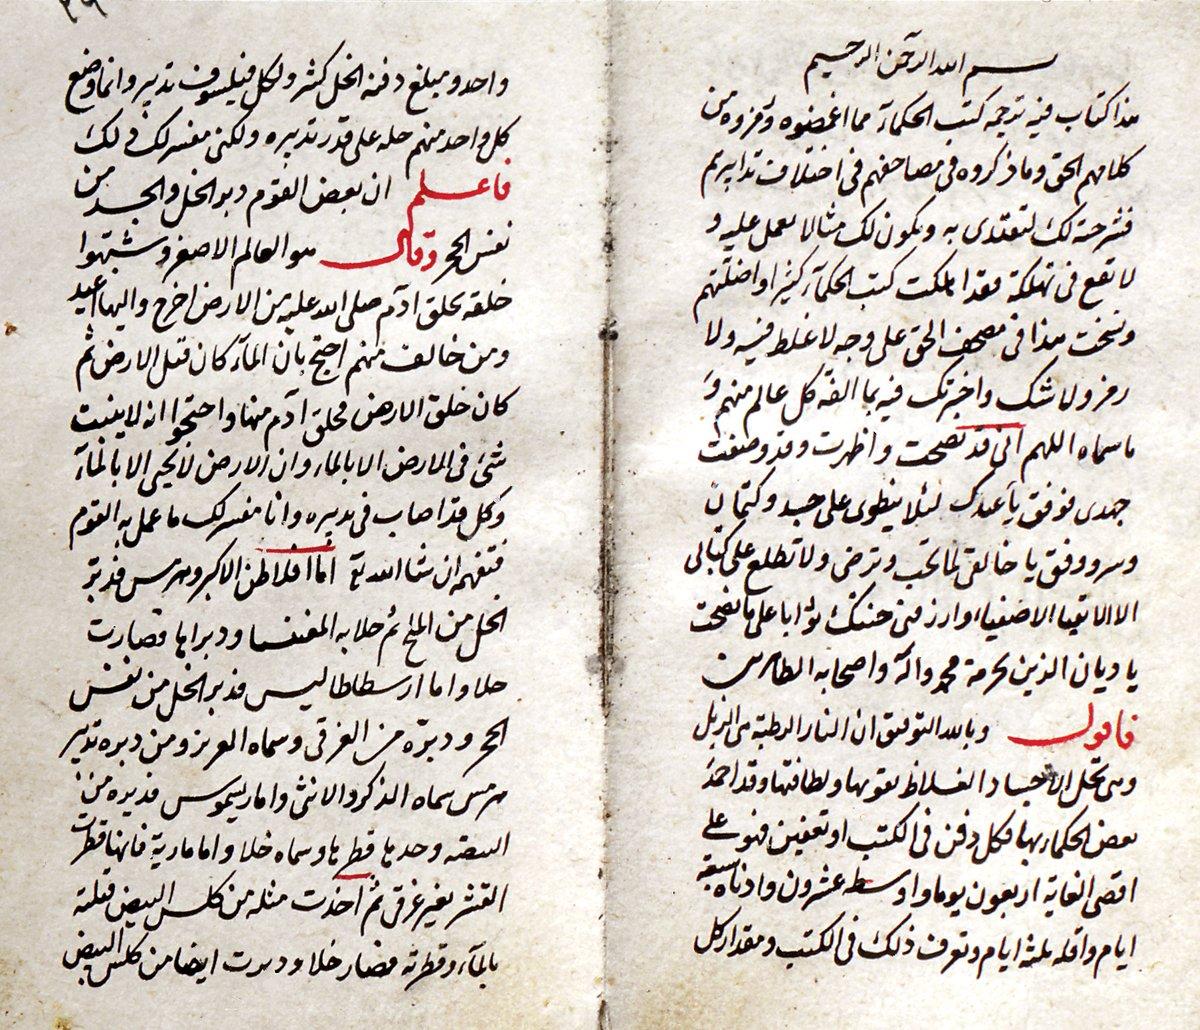 بسم الله الرحمن الرحيم
هذا كتاب فيه ترجمة كتب الحكماء مما اغمضوه ورمزوه من
كلامهم الحق وما ذكروه في مصاحفهم في اختلاف تدابيرهم
فشرحته لك لتقتدى به ويكون لك مثالا يعمل عليه و
لا تقع في تهلكة فقد اهلكت كتب الحكماء كثيرا واضلتهم
ونسخت هذا في مصحف الحق على وجه لا غلط فيه ولا
رمز ولا شك واخبرتك فيه بما الفه كل عالم منهم و
ما سماه اللهم انى قد نصحت واظهرت وقد وصفت
جهدى فوفق يا عبدك لئلا ينطوى على حسد وكتمان
وسر ووفق يا خالقى لما تحب وترضى ولا تطلع على كتابى
الا الاتقيا الاصفياء وارزقنى جنتك ثوابا على ما نصحت
يا ديان الدين بحرمة محمد واله واصحابه الطاهرين
فاقول وبالله التوفيق ان النار الرطبة هى الزبل
وهى تحل الاجساد الغلاظ بقوتها ولطافتها وقد احمد
بعض الحكماء بها فكل دفن في الكتب او تعفين فهو على
اقصى الغاية اربعون يوما واوسطه عشرون وادناه سبعة
ايام واقله ثلثة ايام وتعرف ذلك في الكتب ومقدار كل
واحد ومبلغ دفنه الخل كثير ولكل فيلسوف تدبير وانما وضع
كل واحد منهم حله على قدر تدبيره ولكنى مفسر لك ذلك
فاعلم ان بعض القوم دبر الخل والجسد من
نفس الحجر وقال هو العالم الاصغر وشبهوا
خلقه بخلق ادم صلى الله عليه من الارض اخرج واليها اعيد
ومن خالف منهم احتج بان الماء كان قبل الارض ثم
كان خلق الارض فخلق ادم منها واحتجوا انه لا ينبت
شئ في الارض الا بالماء وان الارض لا يحيى الا بالماء
وكل قد اصاب في تدبيره وانا مفسر لك ما عمل به القوم
فتفهم ان شا الله تع اما افلاطن الاكبر وهرمس فدبر
الخل من الملح ثم حلا به المغنسا ودبراها فصارت
حلا واما ارسطاطاليس فدبر الخل من نفس
الحجر ودبره من الغرقى وسماه العزيز ومن دبره تدبير
هرمس سماه الذكر والانثى واما ريسموس فدبره من
البيضه وحدها قطرها وسماه خلا واما مارية فانها قطرت
القشر بغير غرقى ثم اخذت مثله من كلس البيض فبلته
بالماء وقطرته فصار خلا ودبرت ايضا من كلس البيض